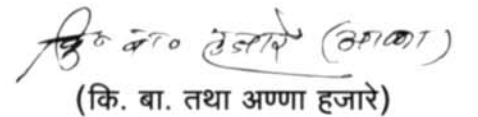 कि० बा० हजारे (अण्णा)
(कि. बा. तथा अण्णा हजारे)